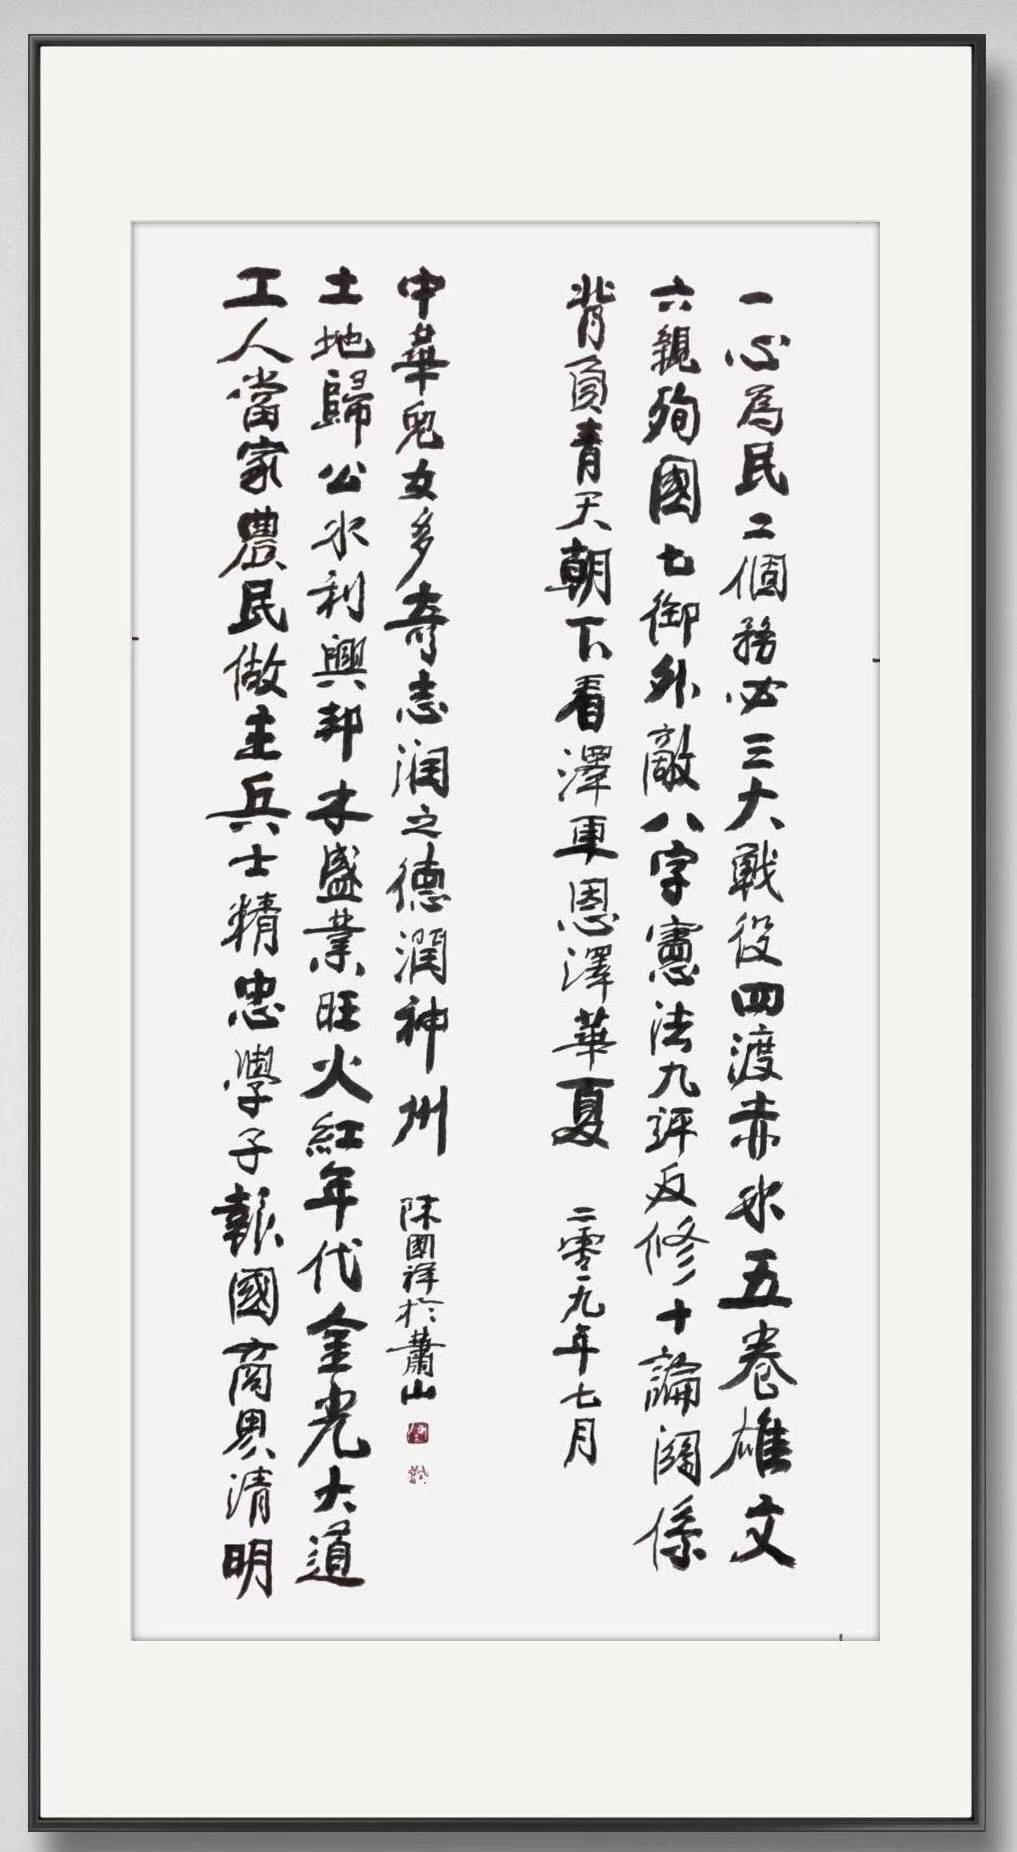 一心為民二個務必三大戰役四渡赤水五卷雄文
六親殉國七御外敵八字憲法九評反修十論關係
背負青天朝下看澤東恩澤華夏
二零一九年七月
工人當家農民做主兵士精忠學子報國商界清明
土地歸公水利興邦木盛業旺火紅年代金光大道
中華兒女多奇志润之德潤神州
陳國祥於蕭山